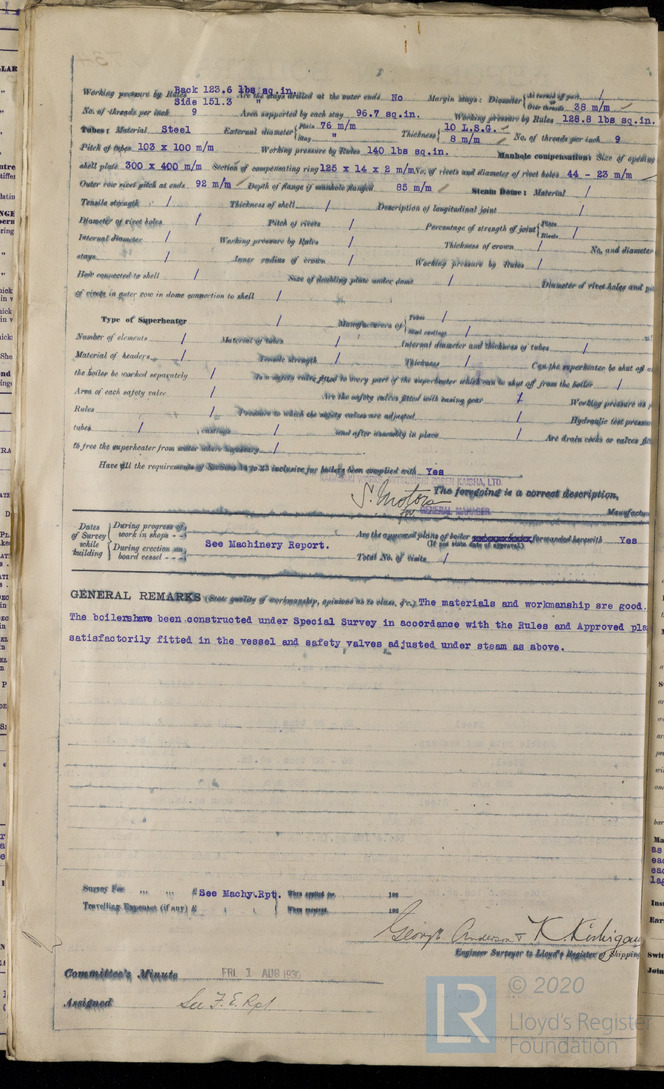 Working pressure by Rules Back 123.6 lbs sq.in. Side 151.3 " Are the stays drilled at the outer ends No Margin stays: Diameter { At turned off part, / Over threads 38 m/m
No. of threads per inch 9 Area supported by each stay 96.7 sq.in. Working pressure by Rules 128.8 lbs sq.in.
Tubes: Material Steel External diameter { Plain 76 m/m Stay " Thickness { 10 L.S.G. 8 m/m No. of threads per inch 9
Pitch of tubes 103 x 100 m/m Working pressure by Rules 140 lbs sq.in. Manhole compensation: Size of opening
shell plate 300 x 400 m/m Section of compensating ring 125 x 14 x 2 m/m No. of rivets and diameter of rivet holes 44 - 23 m/m
Outer row rivet pitch at ends 92 m/m Depth of flange if manhole flanged 85 m/m Steam Dome: Material /
Tensile strength / Thickness of shell / Description of longitudinal joint /
Diameter of rivet holes / Pitch of rivets / Percentage of strength of joint { Plate / Rivets
Internal diameter / Working pressure by Rules / Thickness of crown / No. and diameter
stays / Inner radius of crown / Working pressure by Rules /
How connected to shell / Size of doubling plate under dome / Diameter of rivet holes and
of rivets in outer row in dome connection to shell /
Type of Superheater / Manufacturers of { Tubes / Steel castings /
Number of elements / Material of tubes / Internal diameter and thickness of tubes /
Material of headers / Tensile strength / Thickness / Can the superheater be shut off
the boiler be worked separately / Is a safety valve fitted to every part of the superheater which can be shut off from the boiler /
Area of each safety valve / Are the safety valves fitted with easing gear / Working pressure as
Rules / Pressure to which the safety valves are adjusted / Hydraulic test pressure
tubes / castings / and after assembly in place / Are drain cocks or valves
to free the superheater from water where necessary /
Have all the requirements of Sections 14 to 22 inclusive for boilers been complied with Yes
The foregoing is a correct description,
S. Motora GENERAL MANAGER Manufacturer
Dates of Survey while building { During progress of work in shops - - During erection on board vessel - - - See Machinery Report. Are the approved plans of boiler forwarded herewith (If not state date of approval.) Yes
Total No. of visits /
GENERAL REMARKS (State quality of workmanship, opinions as to class, &c.) The materials and workmanship are good.
The boilers have been constructed under Special Survey in accordance with the Rules and Approved
satisfactorily fitted in the vessel and safety valves adjusted under steam as above.
Survey Fee " " £ See Machy.Rpt. When applied for, 193
Travelling Expenses (if any) £ : : When received, 193
George Anderson &
Engineer Surveyor to Lloyd's Register of Shipping
Committee's Minute FRI. 1 AUG 1930
Assigned See F.E. Rpt
© 2020
LR Lloyd's Register
Foundation